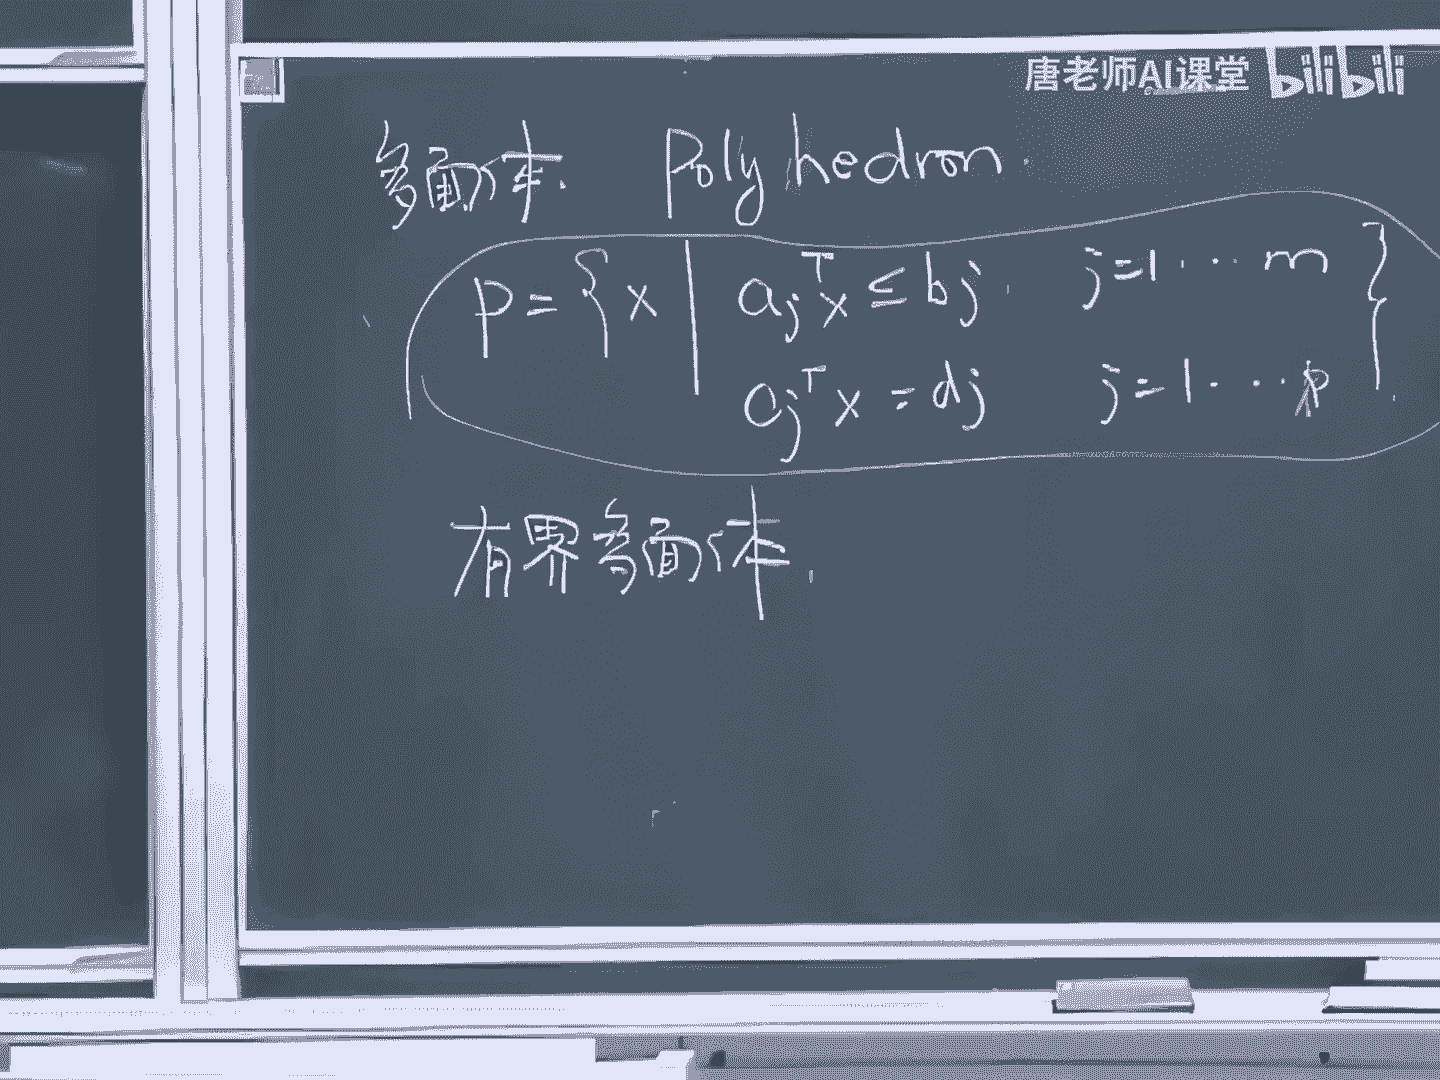 唐老师AI课堂 bilibili
多面体. Polyhedron.
P = { x | a_j^T x ≤ b_j. j=1...m
c_j^T x = d_j j=1...p }
有界多面体.